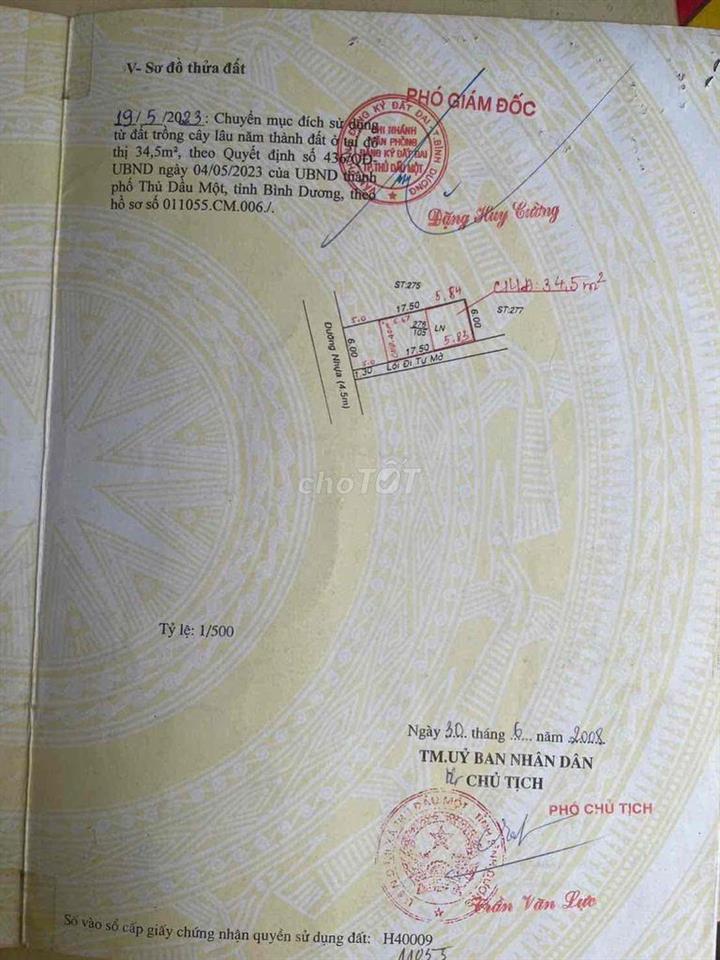 V- Sơ đồ thửa đất
PHÓ GIÁM ĐỐC
19/5/2023: Chuyển mục đích sử dụng
từ đất trồng cây lâu năm thành đất ở tại đô
thị 34,5m², theo Quyết định số 436/QĐ-
UBND ngày 04/05/2023 của UBND thành
phố Thủ Dầu Một, tỉnh Bình Dương, theo
hồ sơ số 011055.CM.006./.
CHI NHÁNH
VĂN PHÒNG
ĐĂNG KÝ ĐẤT ĐAI
TP.THỦ DẦU MỘT
VĂN PHÒNG ĐĂNG KÝ ĐẤT ĐAI T.BÌNH DƯƠNG
Đặng Huy Cường
ST:275
17.50
5.84
34,5 m²
5.0
ST:277
6.00
276
105
LN
6.00
5.83
17.50
5.0
1.30
Lối Đi Tự Mở
Đường Nhựa (4.5m)
chợTỐT
Tỷ lệ: 1/500
Ngày 30 tháng 6 năm 2008
TM.UỶ BAN NHÂN DÂN
CHỦ TỊCH
PHÓ CHỦ TỊCH
Trần Văn Lực
Số vào sổ cấp giấy chứng nhận quyền sử dụng đất: H40009
11055